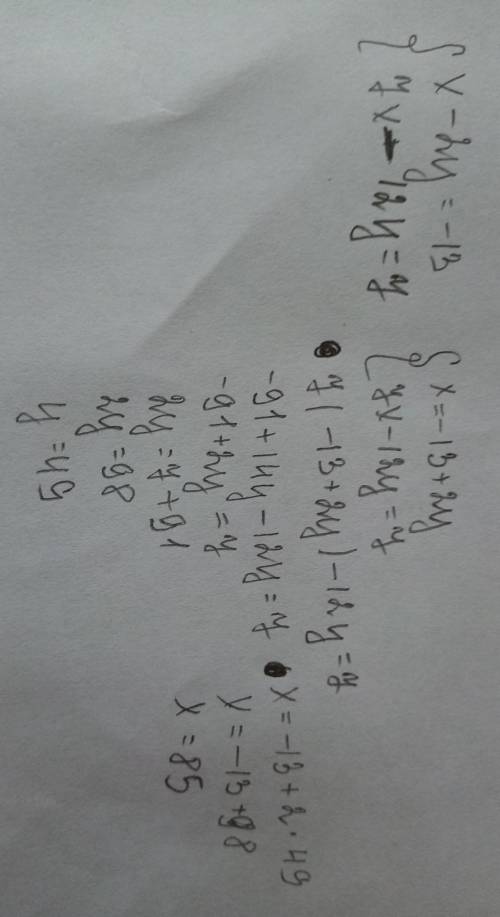 { x - 2y = -13
7x - 12y = 7
{ x = -13 + 2y
7x - 12y = 7
• 7(-13 + 2y) - 12y = 7
-91 + 14y - 12y = 7
-91 + 2y = 7
2y = 7 + 91
2y = 98
y = 49
• x = -13 + 2 · 49
x = -13 + 98
x = 85